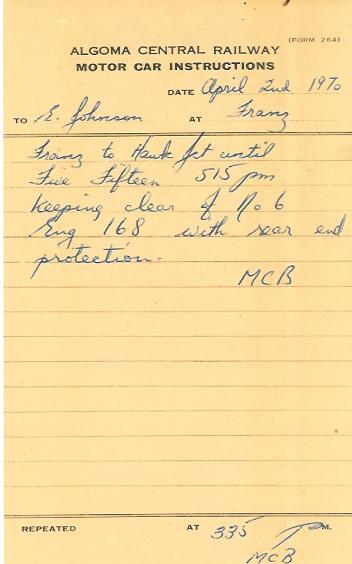 (FORM 264)
ALGOMA CENTRAL RAILWAY
MOTOR CAR INSTRUCTIONS
DATE April 2nd 1970
TO E. Johnson AT Franz
Franz to Hawk Jct until
Five Fifteen 515 pm
keeping clear of No 6
Eng 168 with rear end
protection.
MCB
REPEATED AT 335 P M.
MCB